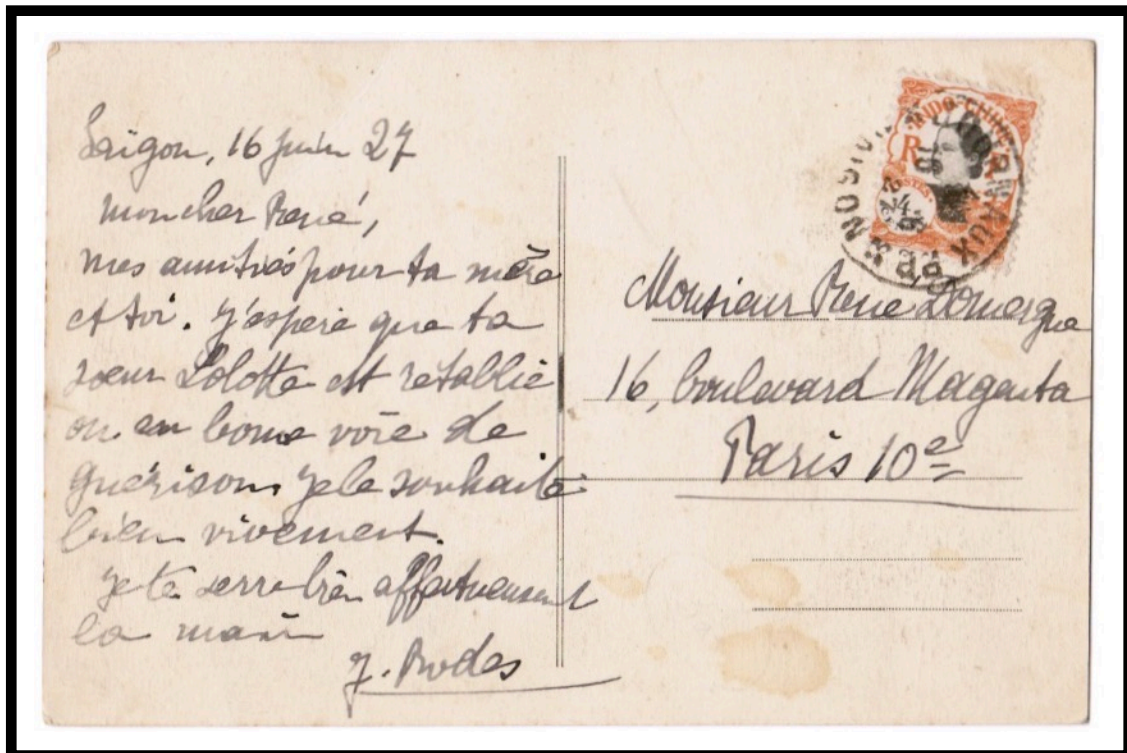 Saigon, 16 juin 27
Mon cher René,
mes amitiés pour ta mère
et toi. J'espère que ta
sœur Lolotte est rétablie
ou en bonne voie de
guérison je le souhaite
bien vivement.
Je te serre bien affectueusement
la main
J. Rodes
INDO-CHINE
RF
POSTES
Monsieur René Domergue
16, boulevard Magenta
Paris 10e